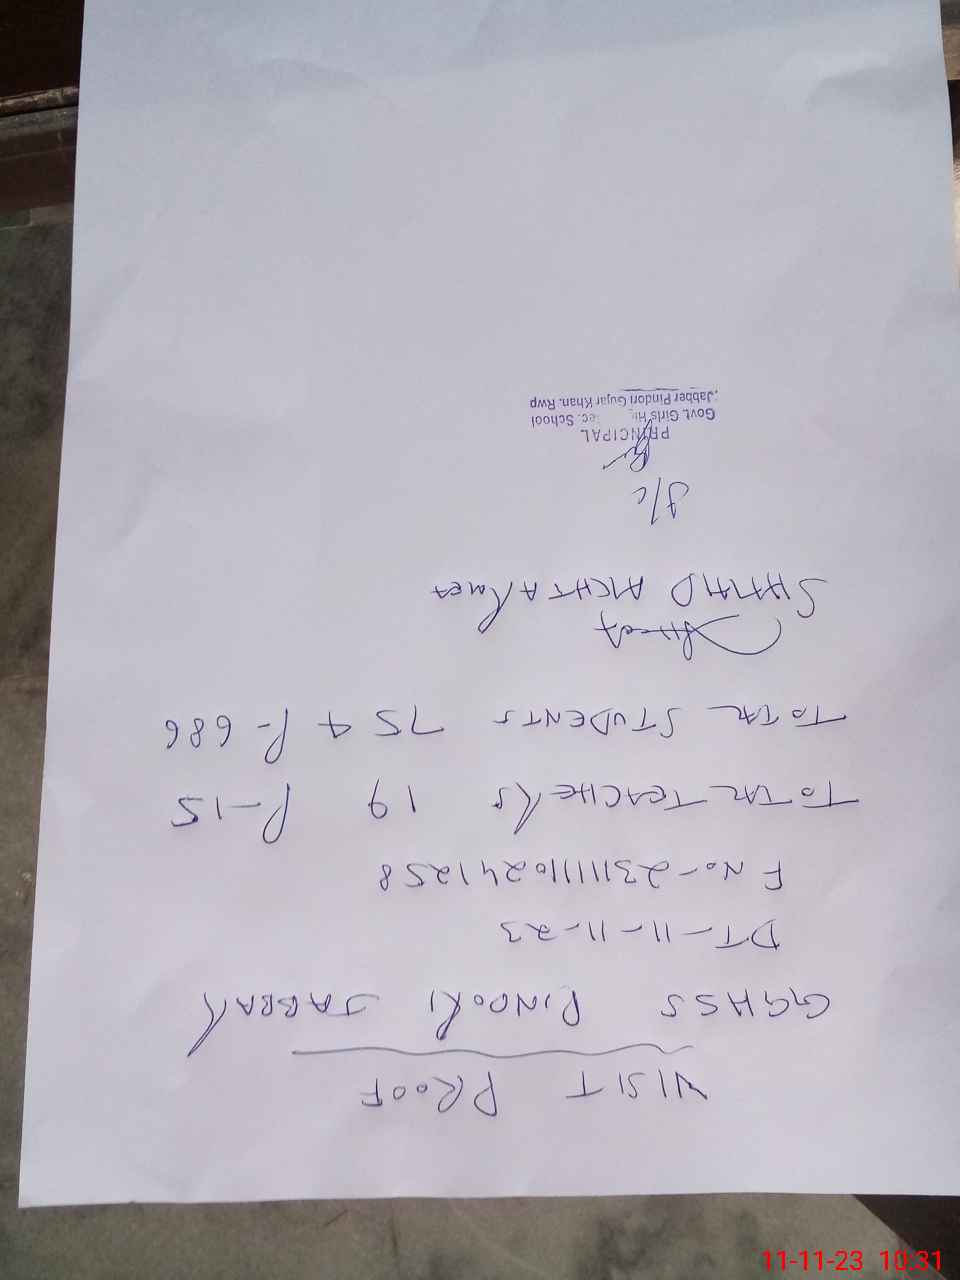 VISIT PROOF
GGHSS PINDORI JABBAR
DT-11-11-23
F No-23111110241258
TOTAL TEACHERS 19 P-15
TOTAL STUDENTS 754 P-686
SHAHID AKHTAR
I/c
PRINCIPAL
Govt. Girls Hig Sec. School
Jabber Pindori Gujar Khan. Rwp
11-11-23 10:31